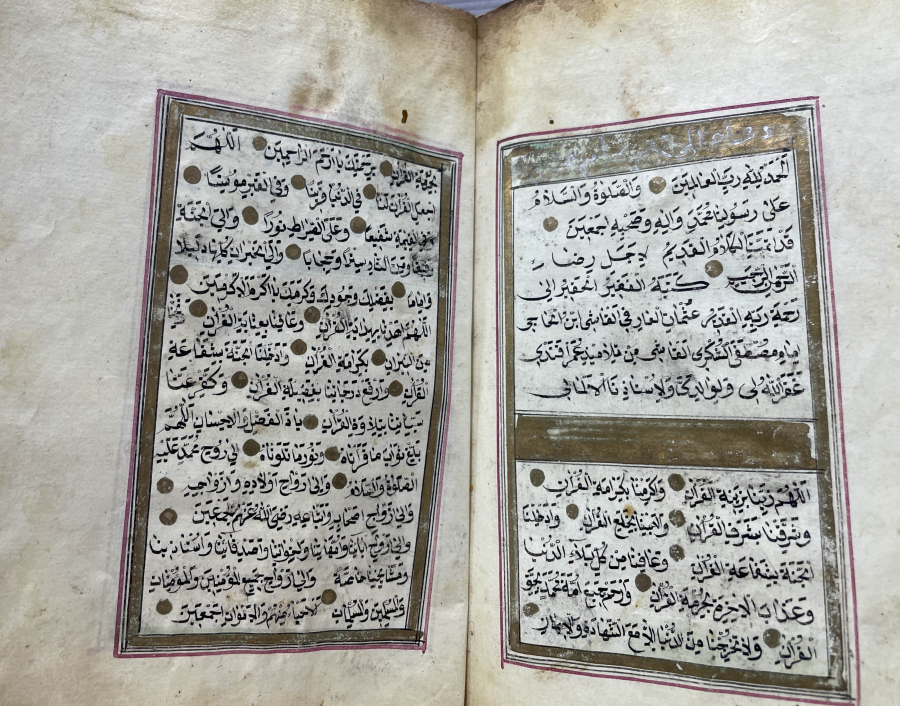 الحمد لله رب العالمين والصلاة والسلام
على رسولنا محمد واله وصحبه اجمعين
قد تمت الكلام القديم لاجل رضاء
الرحمن الرحيم كتبه الفقير الحقير الى
رحمة ربه القدير عثمان العارفي القاضي ابن الحاجي
امام مصطفى الشكري القاضي من تلاميذ
غفر الله لي ولوالدينا ولاستاذنا
اللهم ربنا زينا بزينة القرآن واكرمنا بكرامة القرآن
وشرفنا بشرف القرآن والبسنا بخلعة القرآن وادخلنا
الجنة بشفاعة القرآن وعافنا من كل بلاء الدنيا
وعذاب الاخرة بحرمة القرآن وارحم جميع امة محمد بحق
القرآن ولا تخرجنا من الدنيا الا مع الشهادة والايمان
بحرمة القرآن برحمتك يا ارحم الراحمين اللهم
اجعل القرآن لنا في الدنيا قرينا وفي القبر مونسا
وفي القيمة شفيعا وعلى الصراط نورا والى الجنة
رفيقا ومن النار سترا وحجابا والى الخيرات كلها دليلا
واماما بفضلك وجودك وكرمك يا اكرم الاكرمين
اللهم اهدنا بهداية القرآن وعافنا بعناية القرآن ونجنا
من النيران بكرامة القرآن وادخلنا الجنة بشفاعة
القرآن وارفع درجاتنا بفضيلة القرآن وكفر عنا
سيأتنا بتلاوة القرآن يا ذا الفضل والاحسان اللهم
بلغ ثواب ما قرأناه ونور ما تلوناه الى روح محمد عليه
الصلوة والسلام والى ارواح اولاده وازواجه
والى ارواح اصحابه واتباعه رضي الله عنهم اجمعين
والى ارواح ابائنا وامهاتنا واخواننا واصدقائنا واستاذينا
ومشايخنا خاصة والى ارواح جميع المؤمنين والمؤمنات
والمسلمين والمسلمات الاحياء منهم والاموات اجمعين